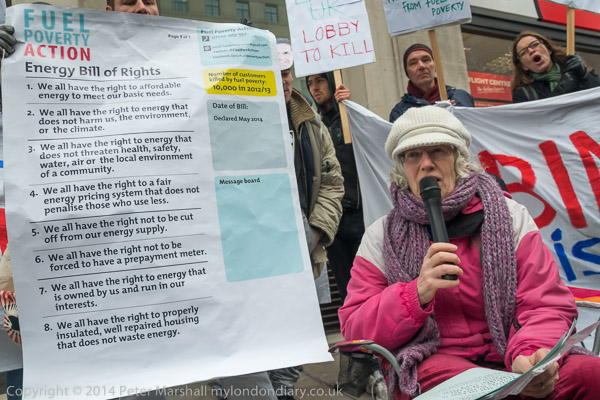 FUEL
POVERTY
ACTION
Page 1 of 1
Energy Bill of Rights
1. We all have the right to affordable
energy to meet our basic needs.
2. We all have the right to energy that
does not harm us, the environment,
or the climate.
3. We all have the right to energy that
does not threaten health, safety,
water, air or the local environment
of a community.
4. We all have the right to a fair
energy pricing system that does not
penalise those who use less.
5. We all have the right not to be cut
off from our energy supply.
6. We all have the right not to be
forced to have a prepayment meter.
7. We all have the right to energy that
is owned by us and run in our
interests.
8. We all have the right to properly
insulated, well repaired housing
that does not waste energy.
Number of customers
killed by fuel poverty:
10,000 in 2012/13
Date of Bill:
Declared May 2014
Message board
UK
LOBBY
TO KILL
FROM FUEL
FLIGHT CENTRE
BIN
is
Copyright © 2014 Peter Marshall mylondondiary.co.uk